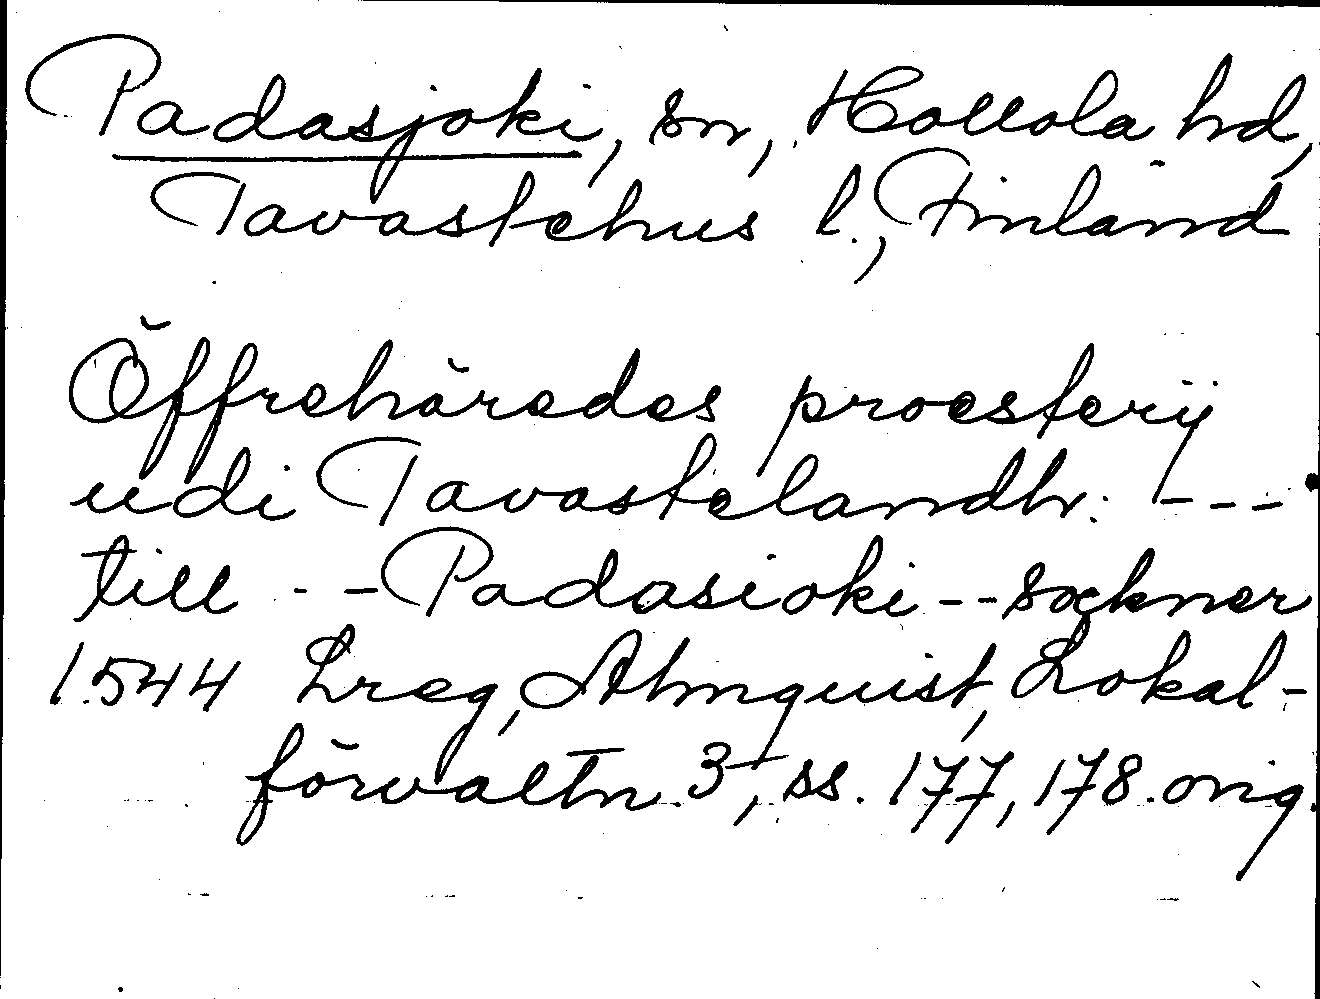 Padasjoki, sn, Hollola hd,
Tavastehus l., Finland
Öffrehäredes proesterij
udi Tavastelandh: ---
till -- Padasioki -- sokner
1544 Lreg, Almquist, Lokal-
förvaltn. 3, ss. 177, 178. orig.